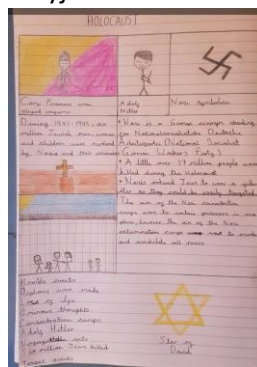 HOLOCAUST
Camp Prisoners were
striped uniforms
Adolf
Hitler
Nazi symbolism
During 1941-1945, six
million Jewish men, women
and children were murdered
by Nazis and their
• Nazi is a German acronym standing
for Nationalsozialistische Deutsche
Arbeiterpartei (National Socialist
German Worker's Party)
• A little over 17 million people were
killed during the Holocaust
• Nazis ordered Jews to wear a yellow
star so they could be easily targeted
The aim of the Nazi concentration
camps was to
extermination camps was to murder
and annihilate all races
Horrible events
Orphans were made
Loss of life
Ominous thoughts
Concentration camps
Adolf Hitler
Unforgettable acts
million Jews killed
Star of
David